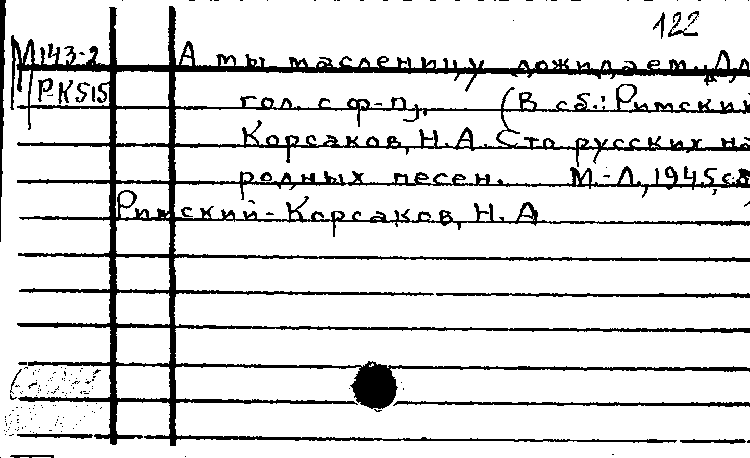 122
М143-2 А мы масленицу дожидаем. Дл
РК515 гол. с ф-п,. (В сб.: Римский
Корсаков, Н.А. Сто русских на
родных песен. М.-Л., 1945, с.8
Римский-Корсаков, Н. А